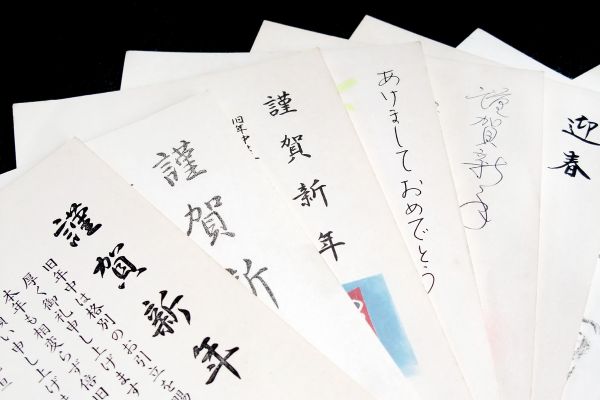 謹賀新年
旧年中は格別のお引立を賜
厚く御礼申し上げます
本年も相変らず倍旧
願い申し上げ
謹賀新
謹賀新年
旧年中
あけましておめでとう
謹賀新年
迎春